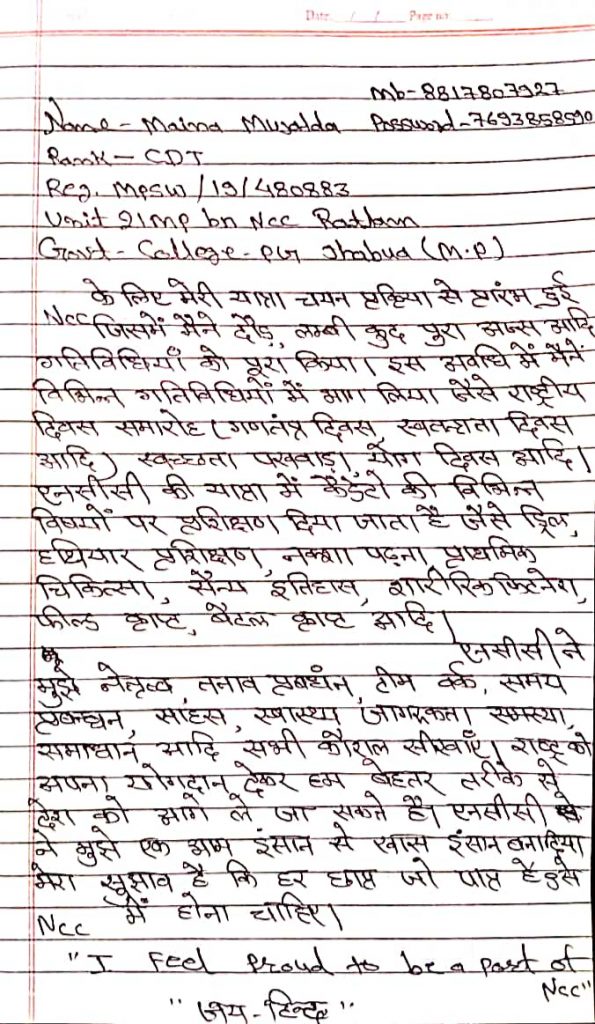 Date / / Page no
mb-8817807927
Name - Maina Mujalda Password-7693858590
Rank - CDT
Reg. MPSW/19/480883
Unit 21 MP bn Ncc Ratlam
Govt - College - PG Jhabua (M.P)
के लिए मेरी यात्रा चयन प्रक्रिया से प्रारंभ हुई
Ncc जिसमें मैने दौड़, लम्बी कुद पुरा अप्स आदि
गतिविधियाँ को पूरा किया। इस अवधि में मैनें
विभिन्न गतिविधियों में भाग लिया जैसे राष्ट्रीय
दिवस समारोह (गणतंत्र दिवस, स्वतन्त्रता दिवस
आदि) स्वच्छता पखवाड़ा, योग दिवस आदि।
एनसीसी की यात्रा में कैडेटो की विभिन्न
विषयों पर प्रशिक्षण दिया जाता है जैसे ड्रिल,
हथियार प्रशिक्षण, नक्शा पढ़ना, प्राथमिक
चिकित्सा, सैन्य इतिहास, शारीरिक फिटनेश,
फील्ड क्राप्ट, बैटल क्राप्ट आदि।
एनसीसी ने
मुझे नेतृत्व, तनाव प्रबधंन, टीम वर्क, समय
प्रबन्धन, साहस, स्वास्थ्य जागरूकता समस्या,
समाधान आदि सभी कौशल सीखाएँ। राष्ट्र को
अपना योगदान देकर हम बेहतर तरीके से
देश को आगे ले जा सकते है। एनसीसी
ने मुझे एक आम इंसान से खास इंसान बनादिया
मेरा सुझाव है कि हर छात्र जो पात्र है इसे
Ncc में होना चाहिए।
"I Feel Proud to be a part of
Ncc"
"जय-हिन्द"